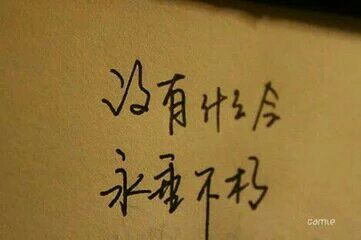 没有什么会
永垂不朽
CaMLe